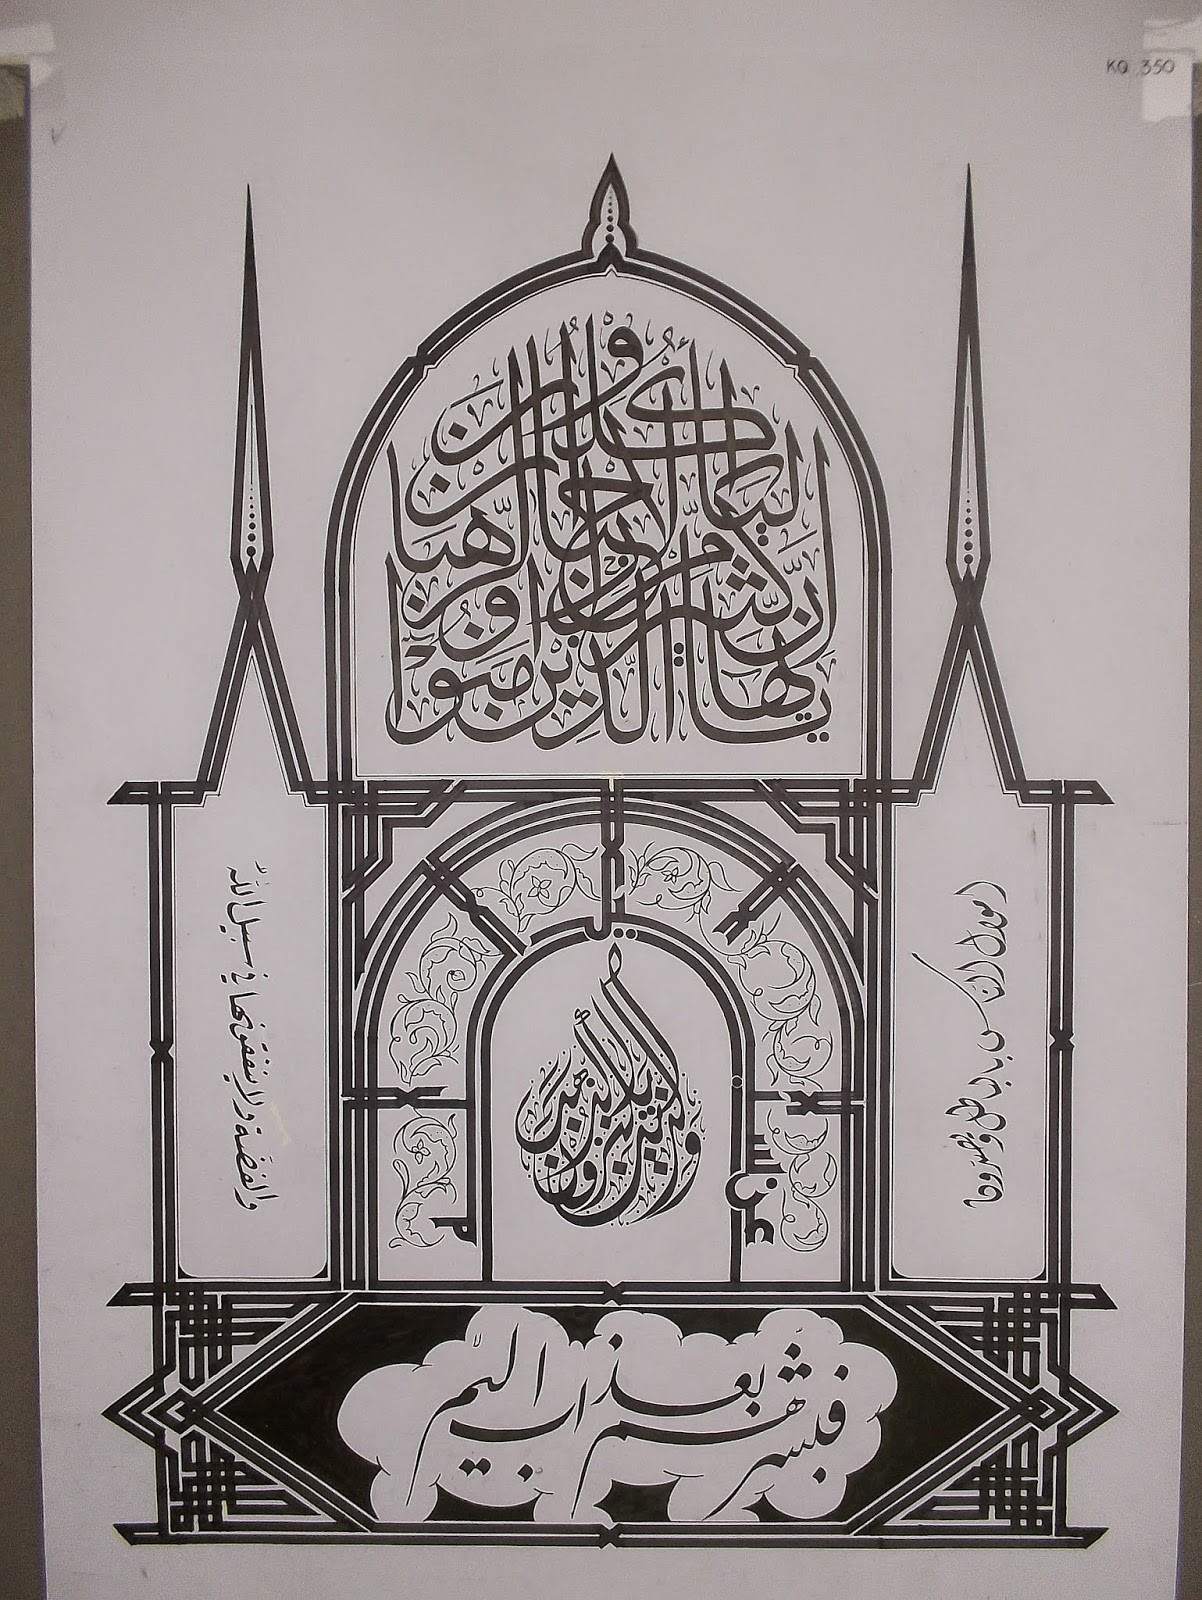 KQ 350
يا أيها الذين آمنوا إن كثيرا من الأحبار والرهبان ليأكلون
أموال الناس بالباطل ويصدون
عن سبيل
والذين يكنزون الذهب
والفضة ولا ينفقونها في سبيل الله
فبشرهم بعذاب أليم